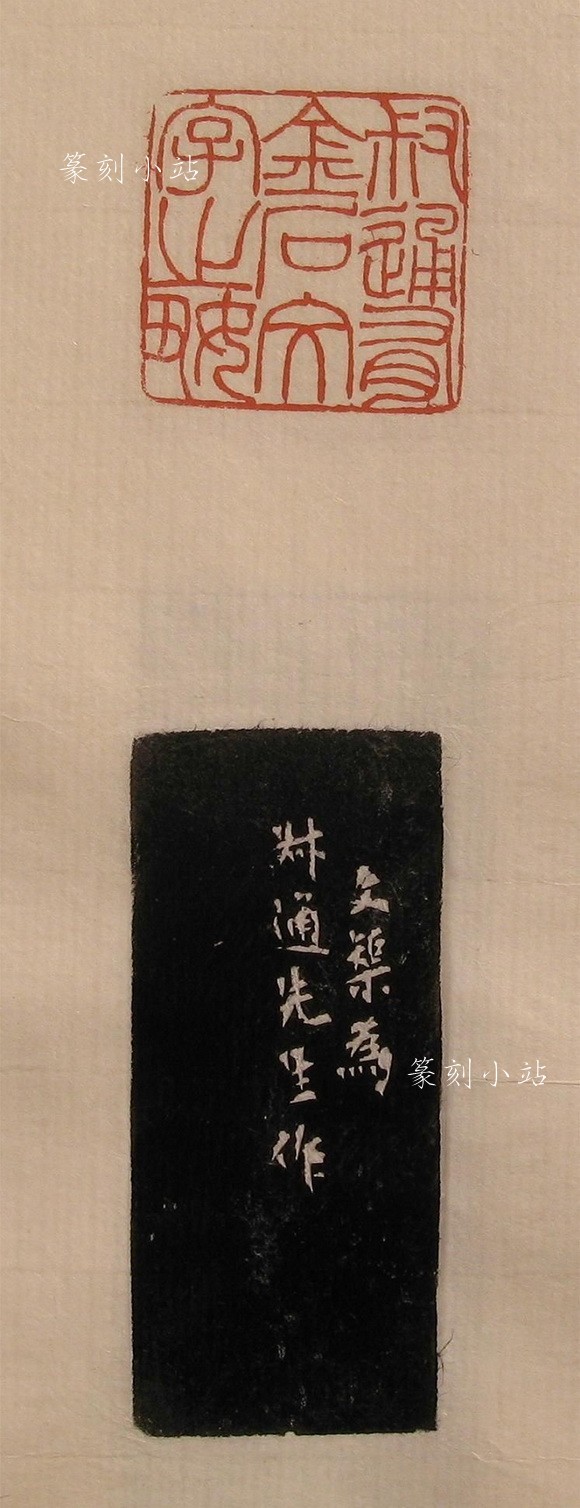 篆刻小站
叔通有
金石文
字之
文榘為
叔通先生作
篆刻小站